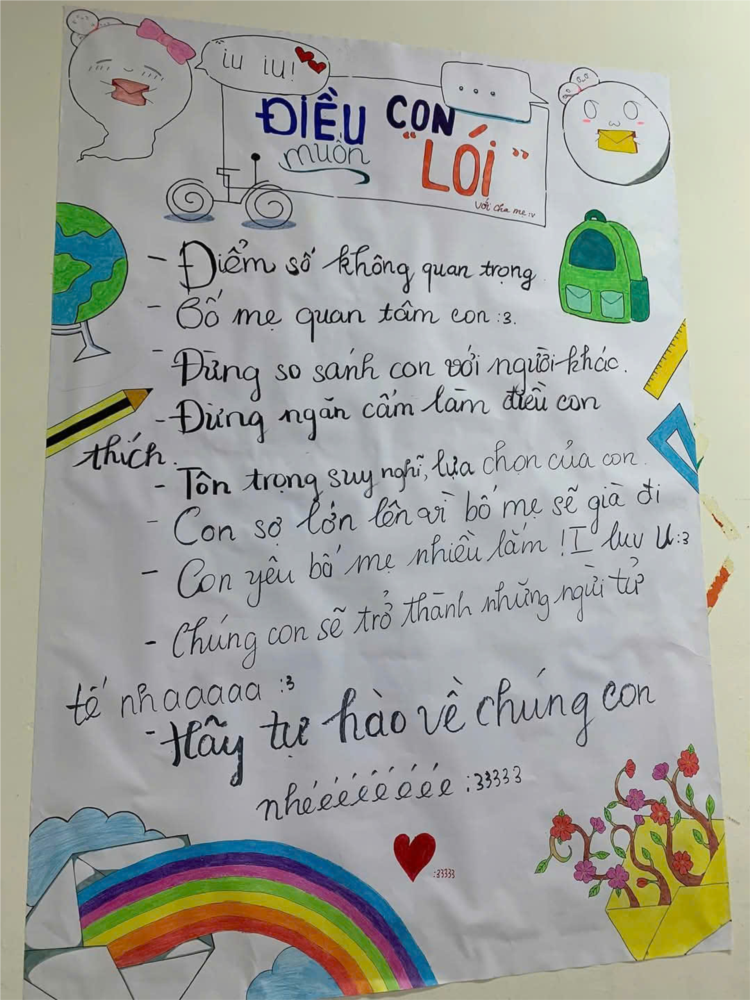 iu iu!
...
ĐIỀU CON
muốn "LÓI"
với cha mẹ :v
- Điểm số không quan trọng
- Bố mẹ quan tâm con :3.
- Đừng so sánh con với người khác.
- Đừng ngăn cấm làm điều con
thích.
- Tôn trọng suy nghĩ, lựa chọn của con.
- Con sợ lớn lên vì bố mẹ sẽ già đi
- Con yêu bố mẹ nhiều lắm! I luv U :3
- Chúng con sẽ trở thành những ngừi tử
tế nhaaaaa :3
- Hãy tự hào về chúng con
nhéééééééé :33333
:33333